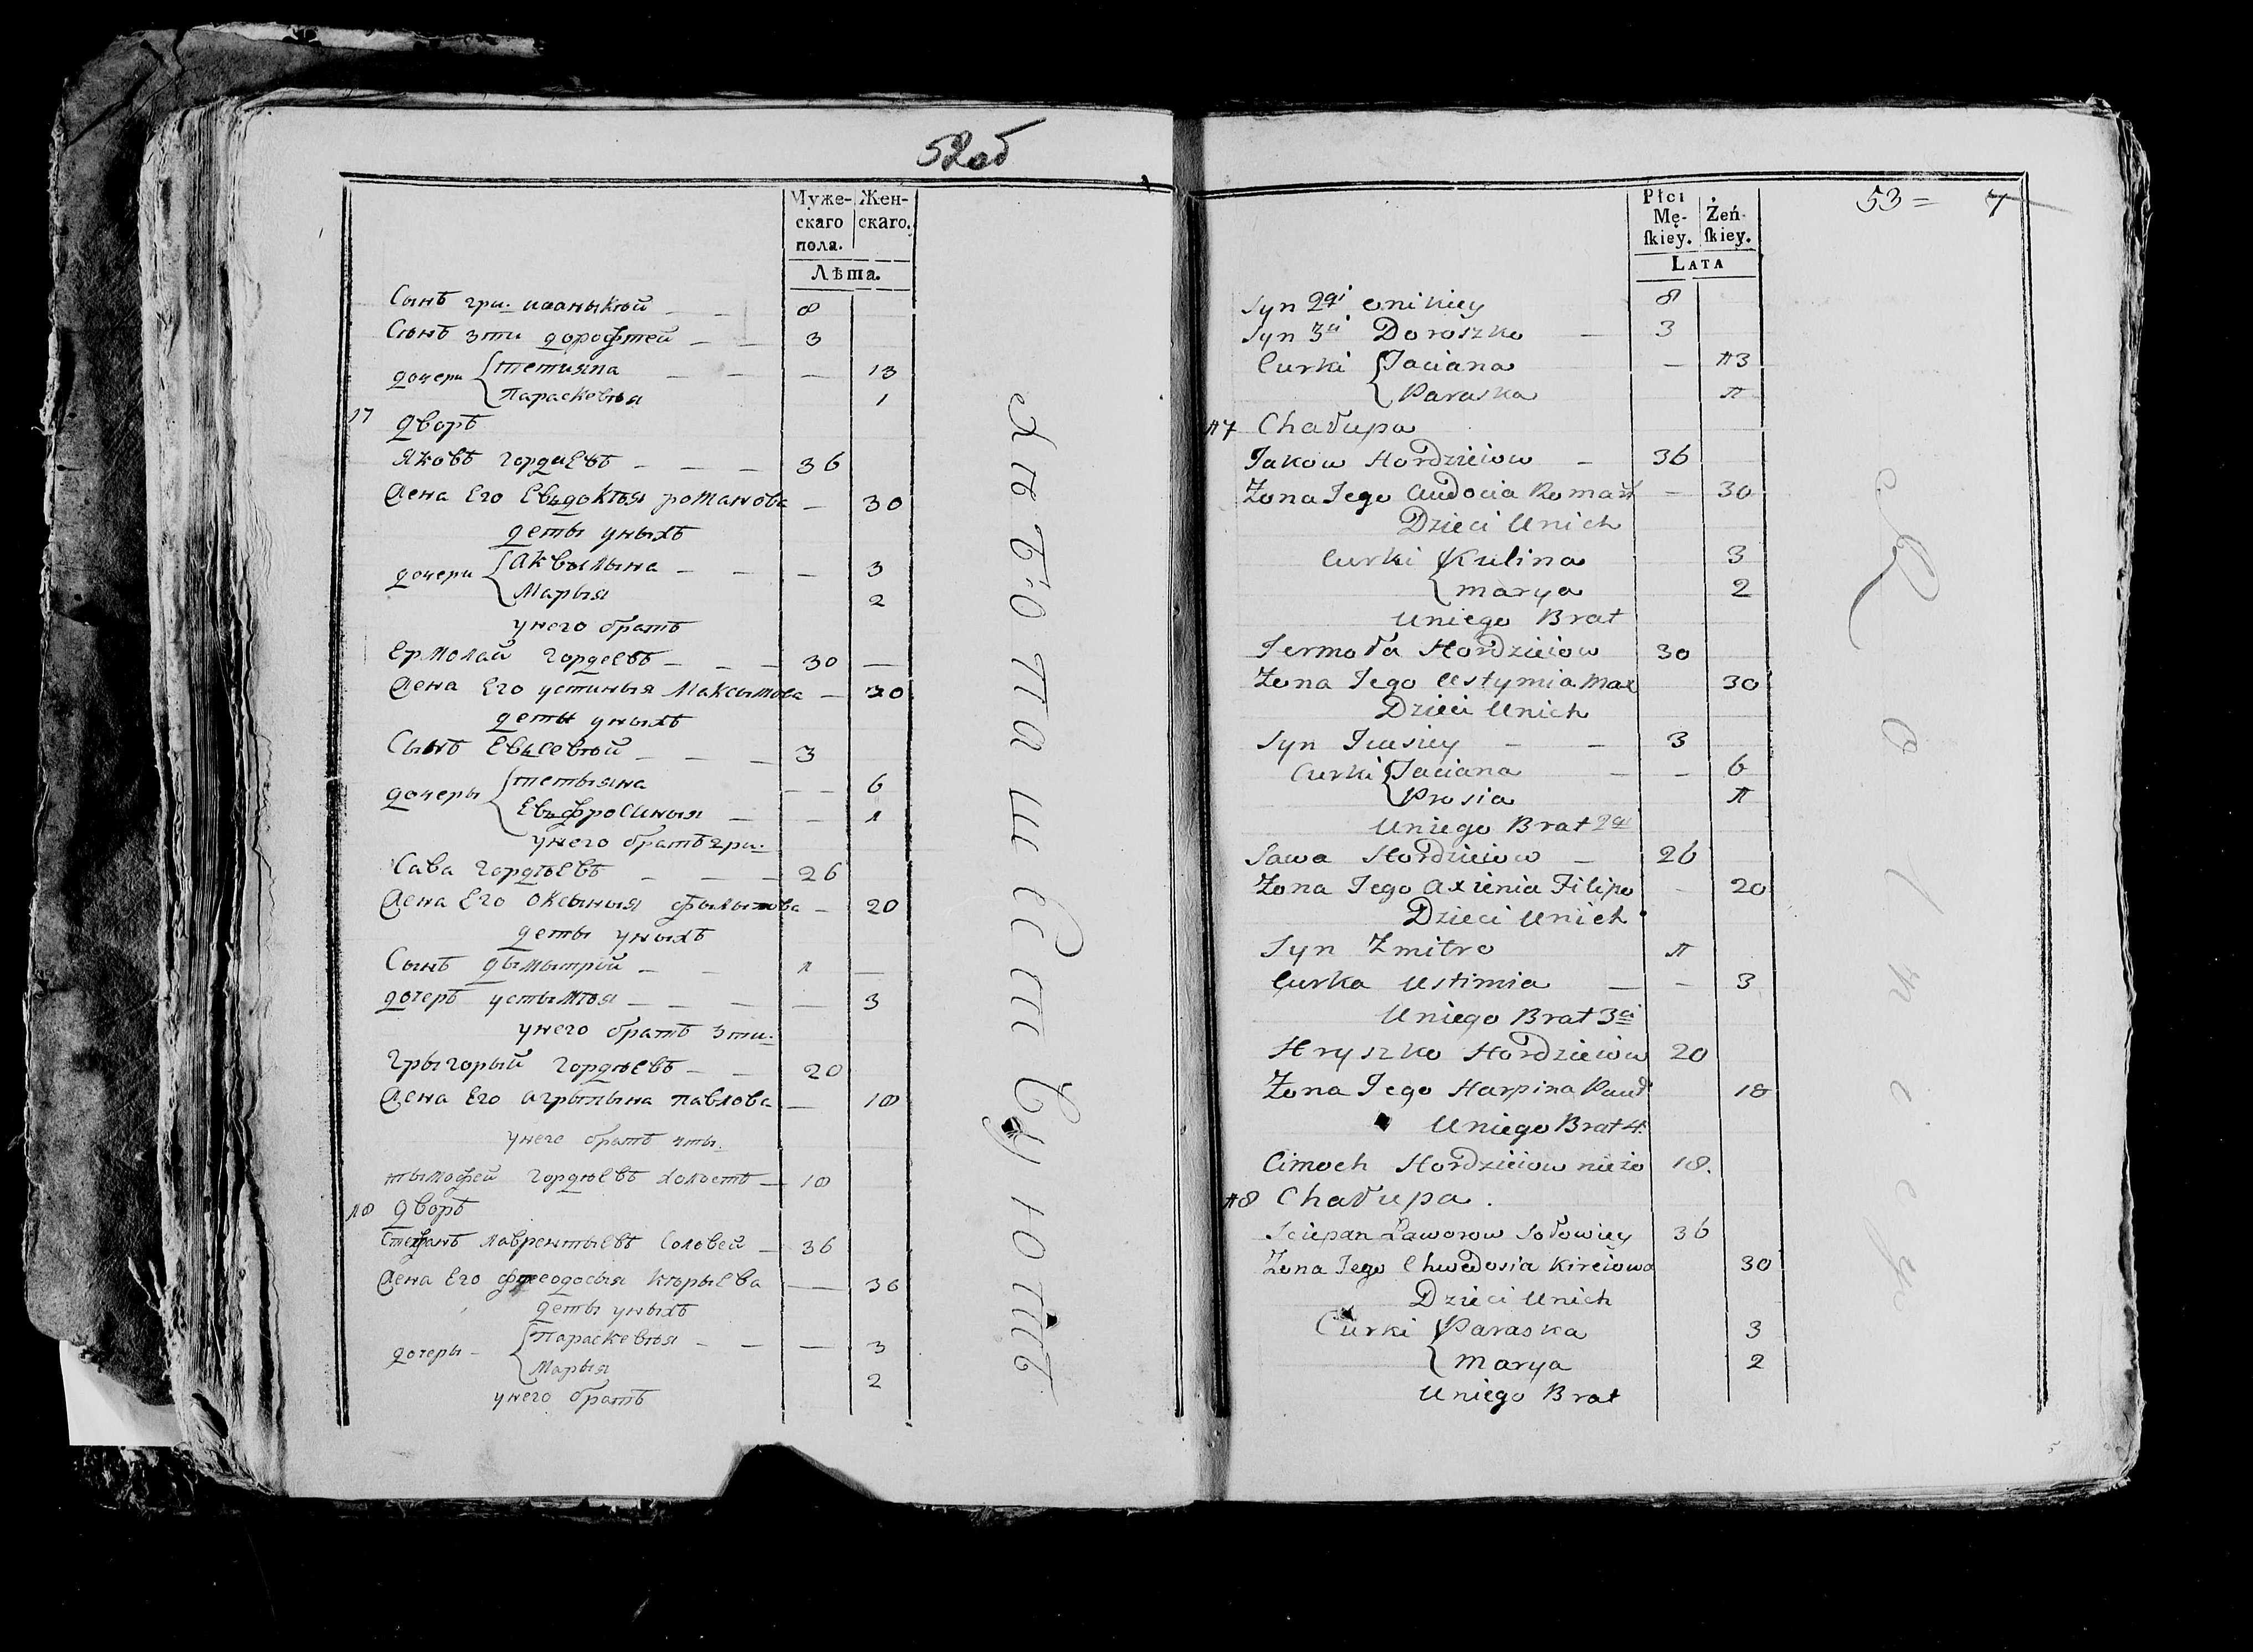 52об
Муже- Жен-
скаго скаго.
пола.
Лѣта.
Сынъ 8
Сынъ 3ти дорофтей 3
дочери тетияна 13
Параскевия 1
17 дворъ
Яковъ гордиевъ 36
Жена Его Евъдоктья романова 30
деты уныхъ
дочери Аквылына 3
Марыя 2
унего братъ
Ермолай гордеевъ 30
Жена Его устинья Максымова 30
деты уныхъ
Сынъ Евъсевюй 3
дочеры тетыяна 6
Евъфросиныя 1
унего братъ гри.
Сава гордѣевъ 26
Жена Его Оксыныя 20
деты уныхъ
Сынъ дымытрiй 1
дочеръ устымюя 3
унего братъ 3ти.
Грыгорый гордѣевъ 20
Жена Его агрыпына павлова 18
унего братъ 4ты.
тымофей гордѣевъ холостъ 18
18 дворъ
Стефанъ лаврентыевъ Соловей 36
Жена Его феодосыя кюрыева 36
деты уныхъ
дочеры Параскевюя 3
Марыя 2
унего братъ
Хлѣбопашествуютъ
Płci
Mę- Żeń-
ſkiey. ſkiey.
LATA
53 = 7
Syn 2gi onikiey 8
Syn 3ci Doroszko 3
Curki Taciana 13
Paraska 1
17 Chałupa
Jakow Hordzieiow 36
Zona Jego Audocia Roman 30
Dzieci Unich
Curki Kulina 3
marya 2
Uniego Brat
Jermoła Hordzieiow 30
Zona Jego Ustymia Max 30
Dzieci Unich
Syn Jeusiey 3
Curki Taciana 6
Prosia 1
Uniego Brat 2gi
Sawa Hordzieiow 26
Zona Jego Axienia Filipo 20
Dzieci Unich
Syn Zmitro 1
Curka Ustimia 3
Uniego Brat 3ci
Hryszko Hordzieiow 20
Zona Jego Harpina Pauł 18
Uniego Brat 4.
Cimoch Hordzieiow nieżo 18.
18 Chałupa.
Sciepan Ławorow Sołowiey 36
Zona Jego Chwedosia Kireiowa 30
Dzieci Unich
Curki Paraska 3
marya 2
Uniego Brat
Rolniczy